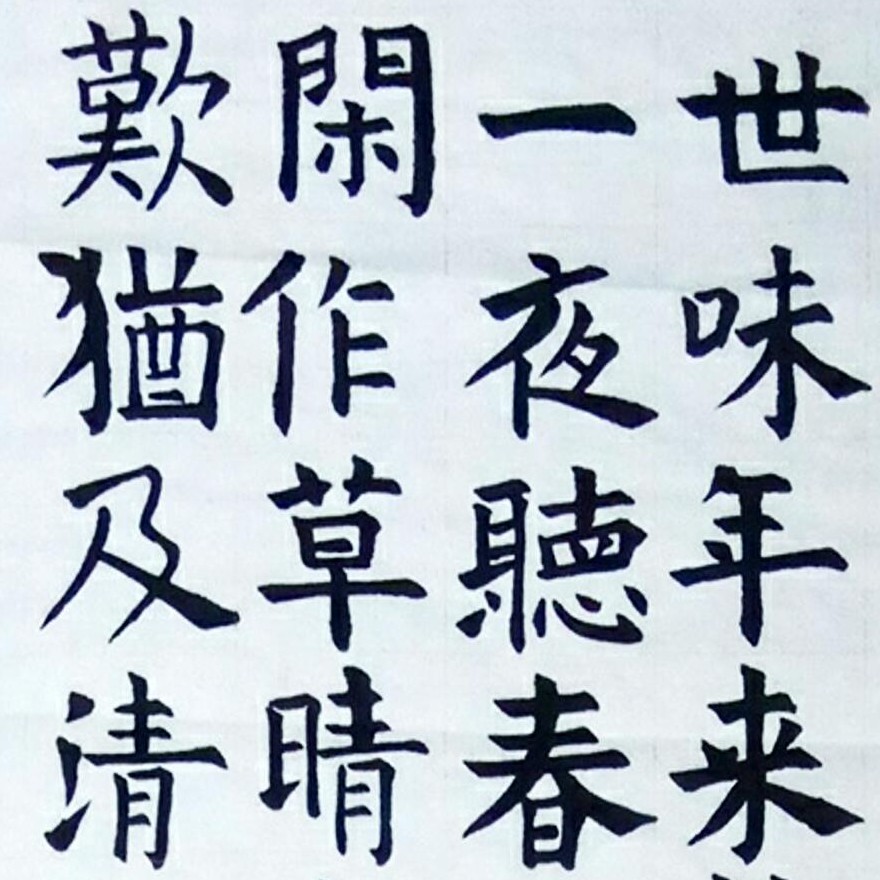 世味年来
一夜聽春
閑作草晴
歎猶及清